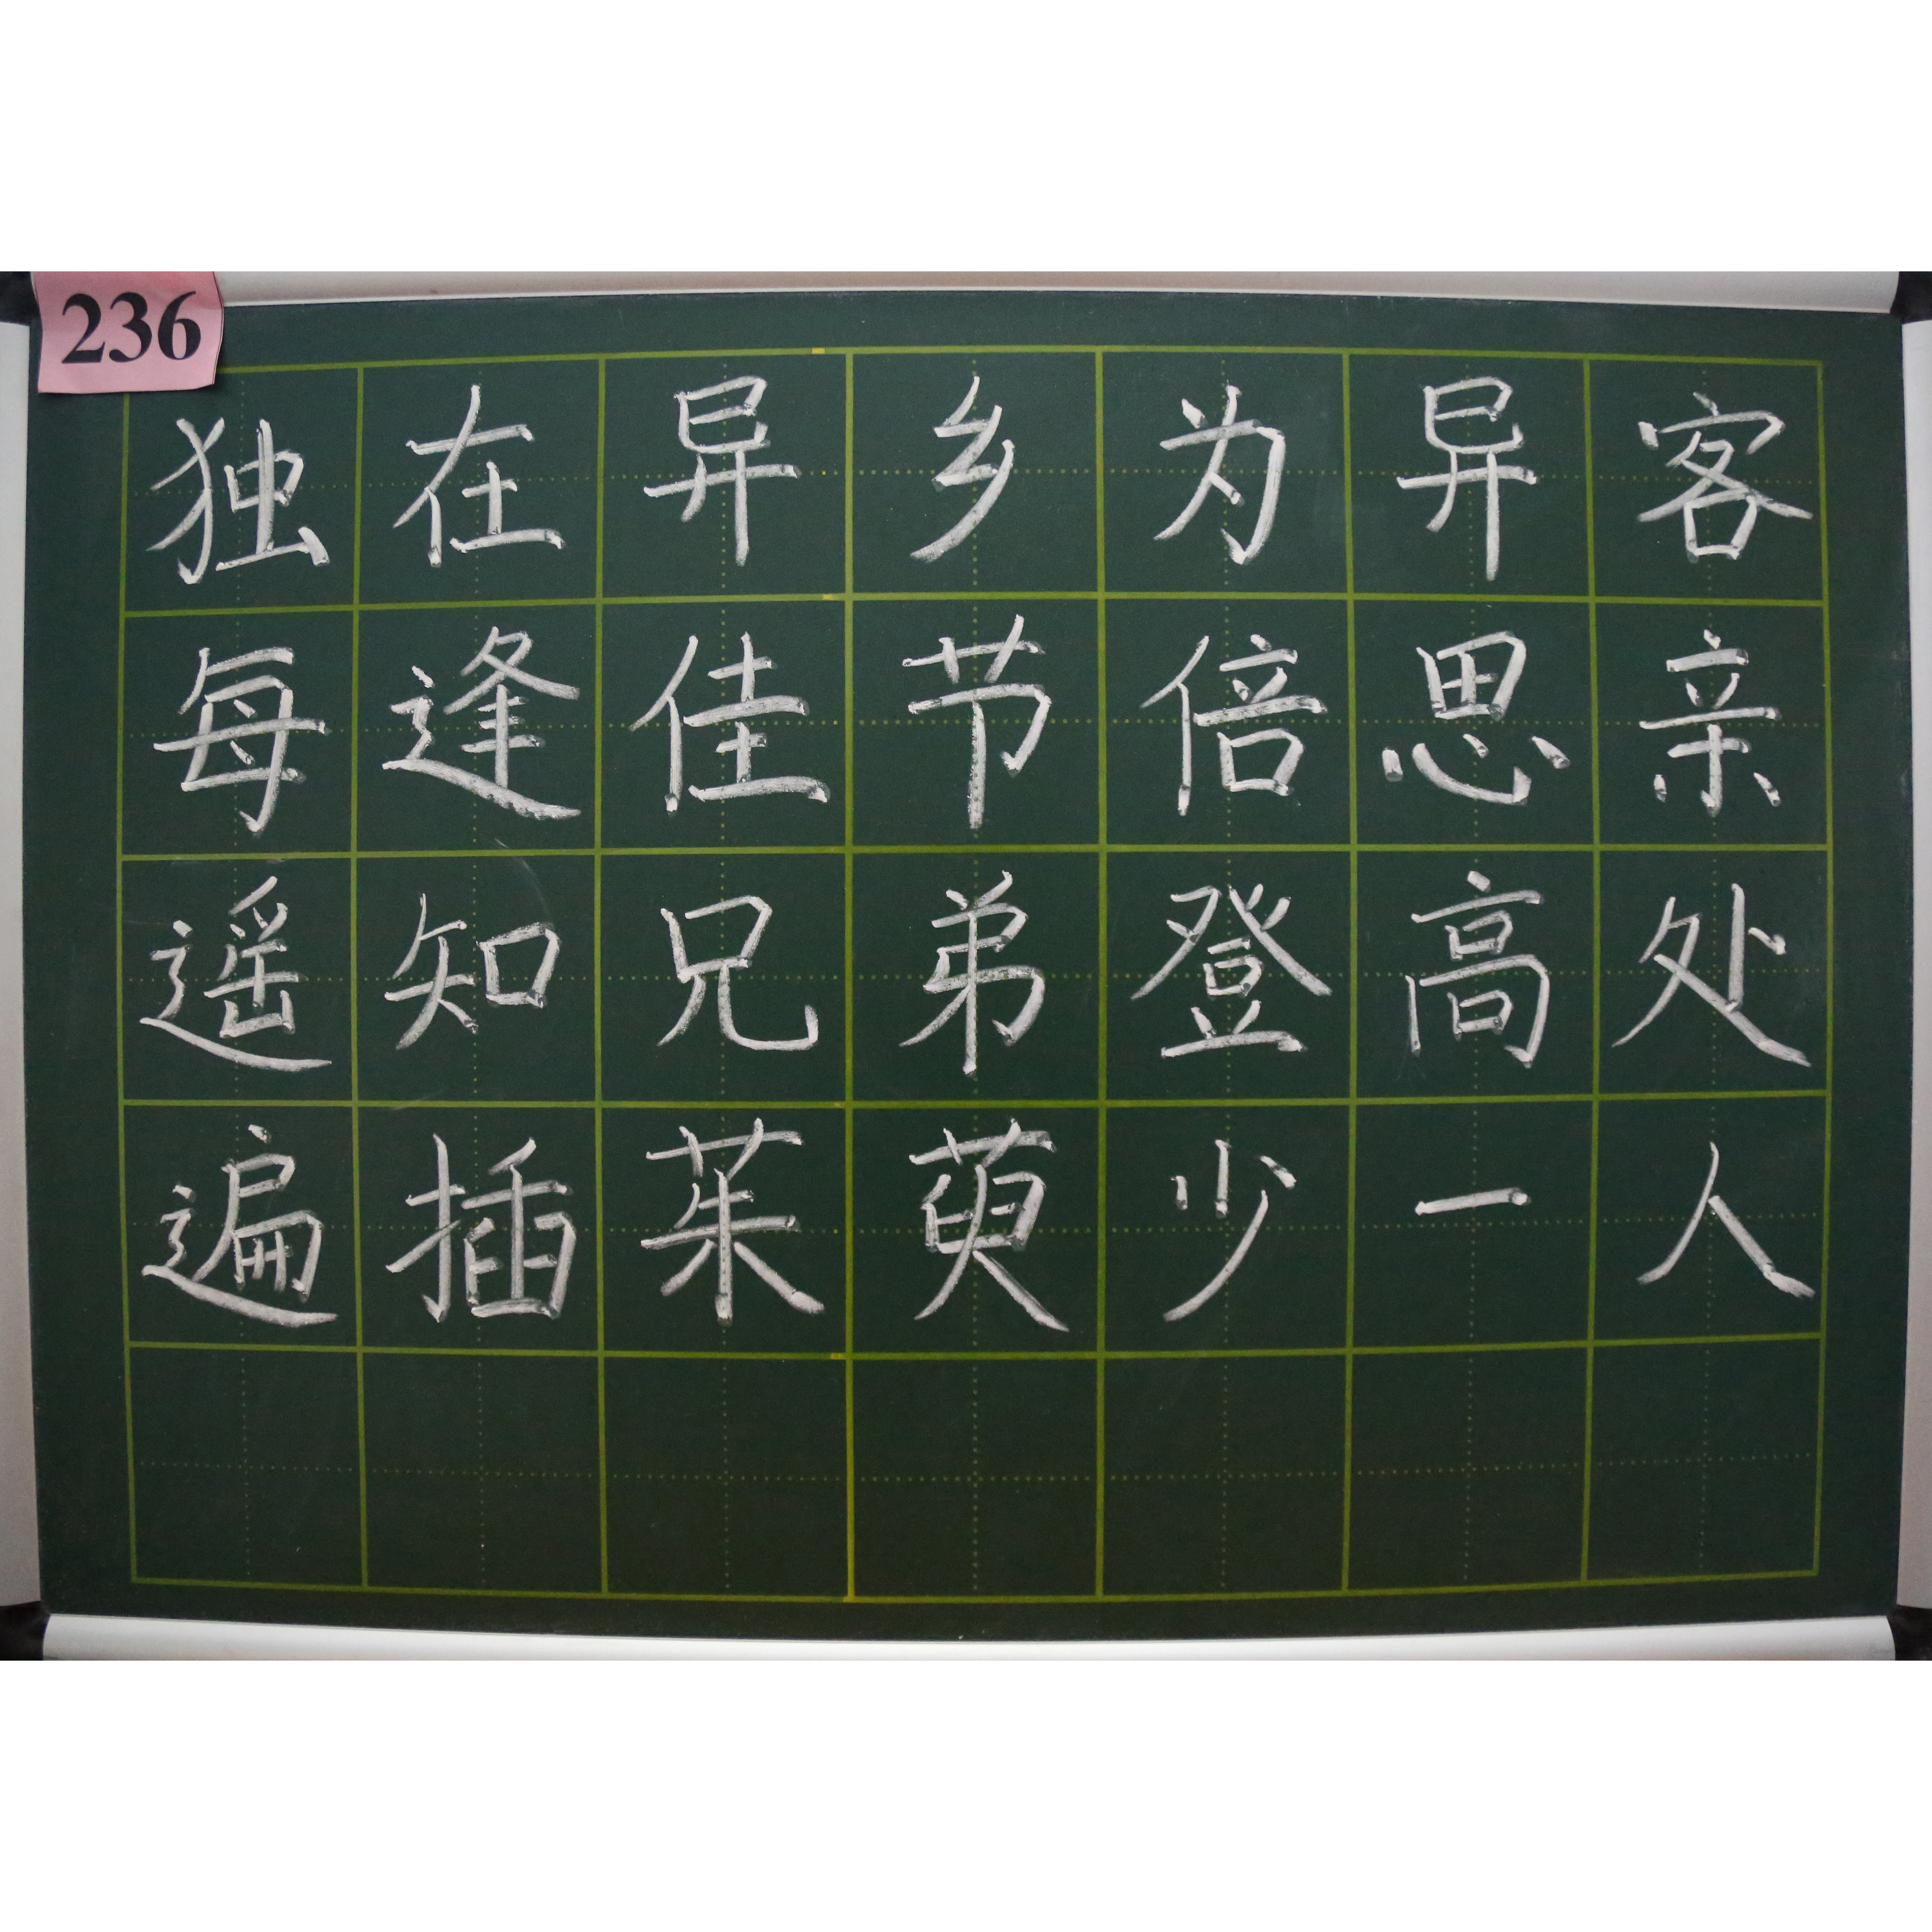 236
独在异乡为异客
每逢佳节倍思亲
遥知兄弟登高处
遍插茱萸少一人